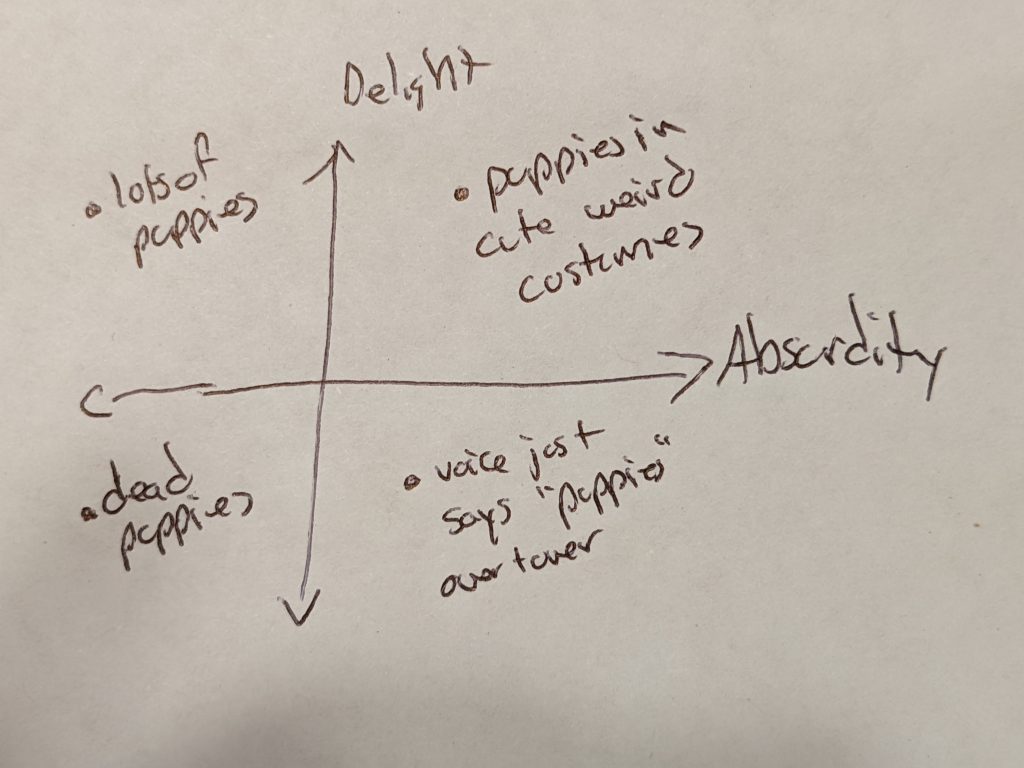 Delight
• lots of
puppies
• puppies in
cute weird
costumes
Absurdity
• dead
puppies
• voice just
says "puppies"
over + over